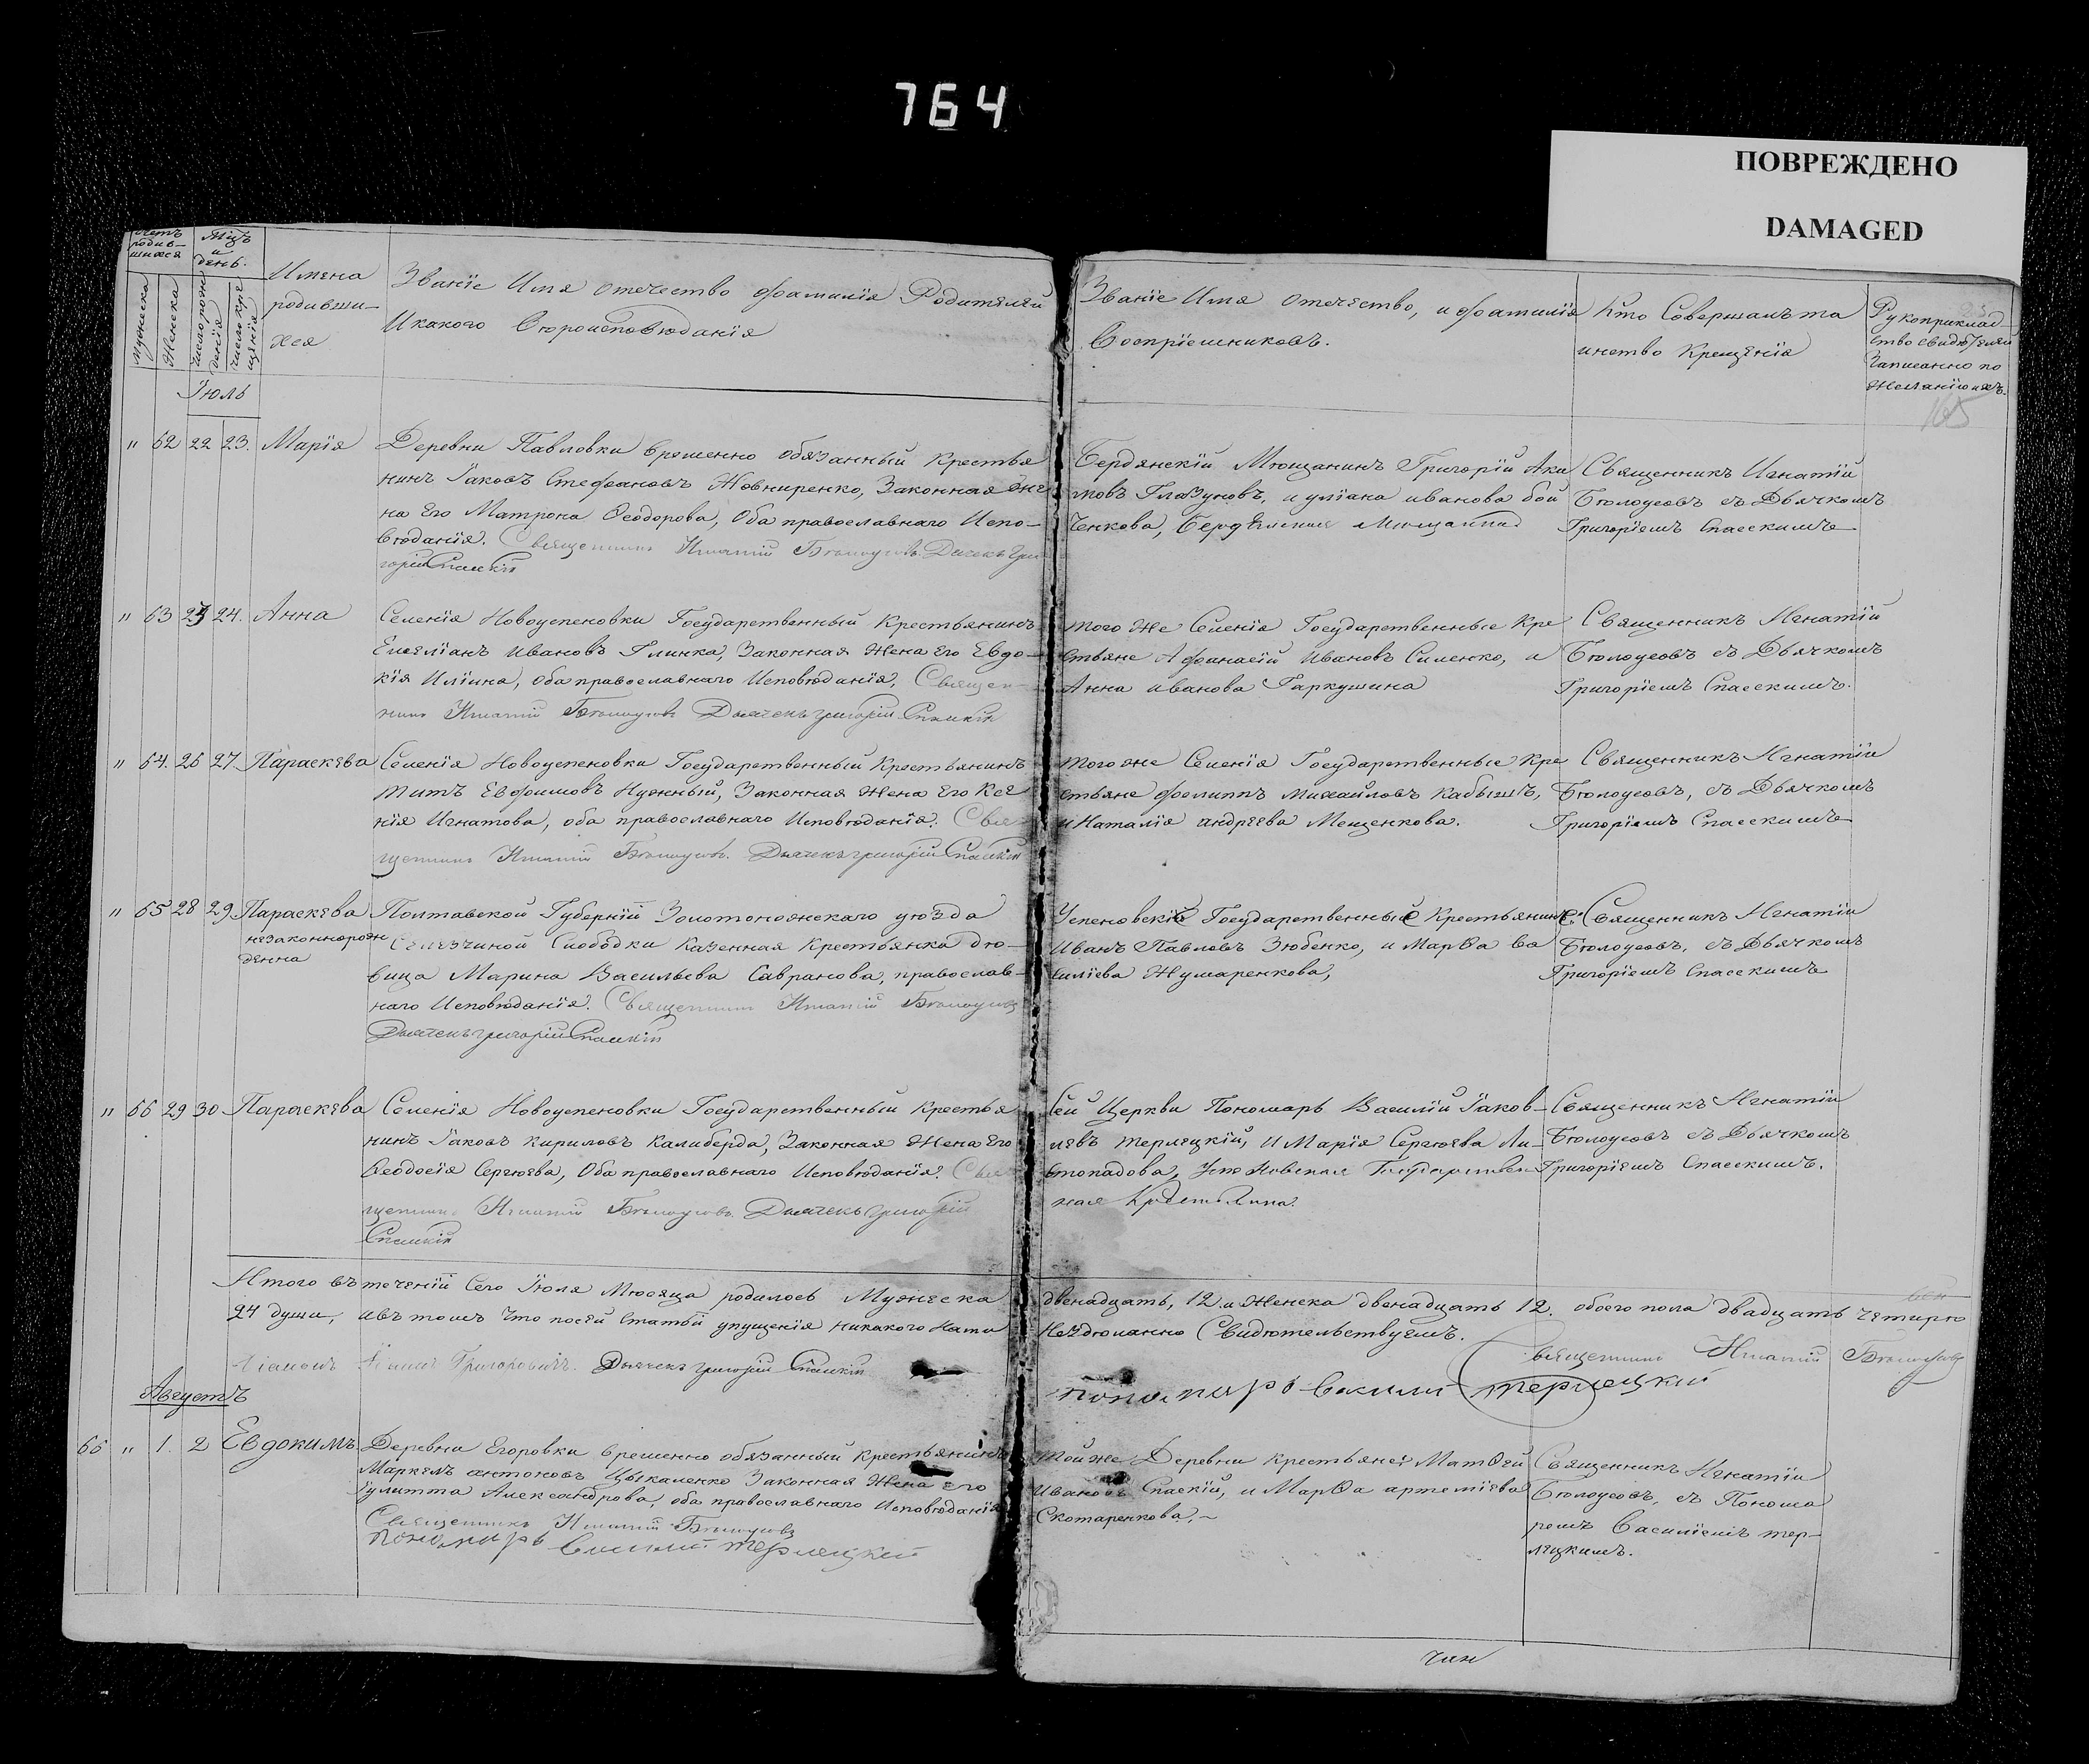 764
ПОВРЕЖДЕНО
DAMAGED
Счетъ родив-шихся
Мѣсяцъ и день.
мужеска
женска
число рождения
число крещенія
Имена родивши-хся
Званіе Имя отечество фамилія Родителей
Икакого Вѣроисповѣданія
Званіе Имя отечество, и фамилія
Воспріемниковъ.
Кто Совершалъ та
инство Крещенія
Рукоприклад-
ство свидѣтелей
Записанно по
Желанію ихъ.
165
Іюль
" 62 22 23. Марія
Деревни Павловки временно обязанный Крестья
нинъ Іаковъ Стефановъ Жовниренко, Законная Же
на Его Матрона Ѳеодорова, Оба православнаго Испо-
вѣданія. Священникъ Игнатій Бѣлоусовъ Дьячекъ Гри
горій Спаскій
Бердянскій Мѣщанинъ Григорій Аки
мовъ Глазуновъ, и уліана иванова бой
ченкова, Бердянская Мѣщанка
Священникъ Игнатій
Бѣлоусовъ съ Дьячкомъ
Григоріемъ Спасскимъ
" 63 23 24. Анна
Селенія Новоуспеновки Государственный Крестьянинъ
Емеліанъ Ивановъ Глинка, Законная Жена Его Евдо-
кія Иліина, оба православнаго Исповѣданія, Священ-
никъ Игнатій Бѣлоусовъ Дьячекъ григорій Спаскій
того же Селенія Государственные Кре
стьяне Афанасій Ивановъ Силенко, и
Анна иванова Гаркушина
Священникъ Игнатій
Бѣлоусовъ съ Дьячкомъ
Григоріемъ Спасскимъ.
" 64. 26 27. Параскева
Селенія Новоуспеновки Государственный Крестьянинъ
Титъ Евфимовъ Нужный, Законная Жена Его Ксе
нія Игнатова, оба православнаго Исповѣданія. Свя
щенникъ Игнатій Бѣлоусовъ. Дьячекъ григорій Спаскій
того же Селенія Государственные Кре
стьяне филиппъ михайловъ кабышъ,
и Наталія андреева Мещенкова.
Священникъ Игнатій
Бѣлоусовъ, съ Дьячкомъ
Григоріемъ Спасскимъ
" 65 28 29 Параскева
незаконнорож
денна
Полтавской Губерніи Золотоножскаго уѣзда
Слободки Казенная Крестьянка дѣ-
вица Марина Васильева Савранова, православ-
наго Исповѣданія. Священникъ Игнатій Бѣлоусовъ
Дьячекъ григорій Спаскій
Успеновскіе Государственные Крестьяне
Иванъ Павловъ Зюбенко, и Марѳа ва
силіева Жумаренкова,
Священникъ Игнатій
Бѣлоусовъ, съ Дьячкомъ
Григоріемъ Спасскимъ
" 66 29 30 Параскева
Селенія Новоуспеновки Государственный Крестья
нинъ Іаковъ Кириловъ Калиберда, Законная Жена Его
Ѳеодосія Сергѣева, Оба православнаго Исповѣданія. Свя
щенникъ Игнатій Бѣлоусовъ. Дьячекъ григорій
Спаскій
Сей Церкви Пономарь Василій Іаков-
левъ терлецкій, и Марія Сергѣева Ли-
стопадова, Государствен
ная Крестьянка.
Священникъ Игнатій
Бѣлоусовъ съ Дьячкомъ
Григоріемъ Спасскимъ.
Итого въ теченіи Сего Іюля Мѣсяца родилось Мужеска
двенадцать, 12. и Женска двенадцать 12. обоего пола двадцать четыре
24 души, ивъ томъ что посей Статьи упущенія никакого Нами
Несдѣланно Свидѣтельствуемъ.
Священникъ Игнатій Бѣлоусовъ
Григоровичъ. Дьячекъ григорій Спаскій
пономарь Василій терлецкій
Августъ
66 " 1. 2 Евдокимъ
Деревни Егоровки временно обязанный Крестьянинъ
Маркелъ антоновъ Цыкаленко Законная Жена его
Іулитта Александрова, оба православнаго Исповѣданія
Священникъ Игнатій Бѣлоусовъ
пономарь Василій терлецкій
той же Деревни крестьяне: Матѳей
Ивановъ Спаскій, и Марѳа артеміева
Скотаренкова,
Священникъ Игнатій
Бѣлоусовъ, съ Понома
ремъ Василіемъ тер-
лецкимъ.